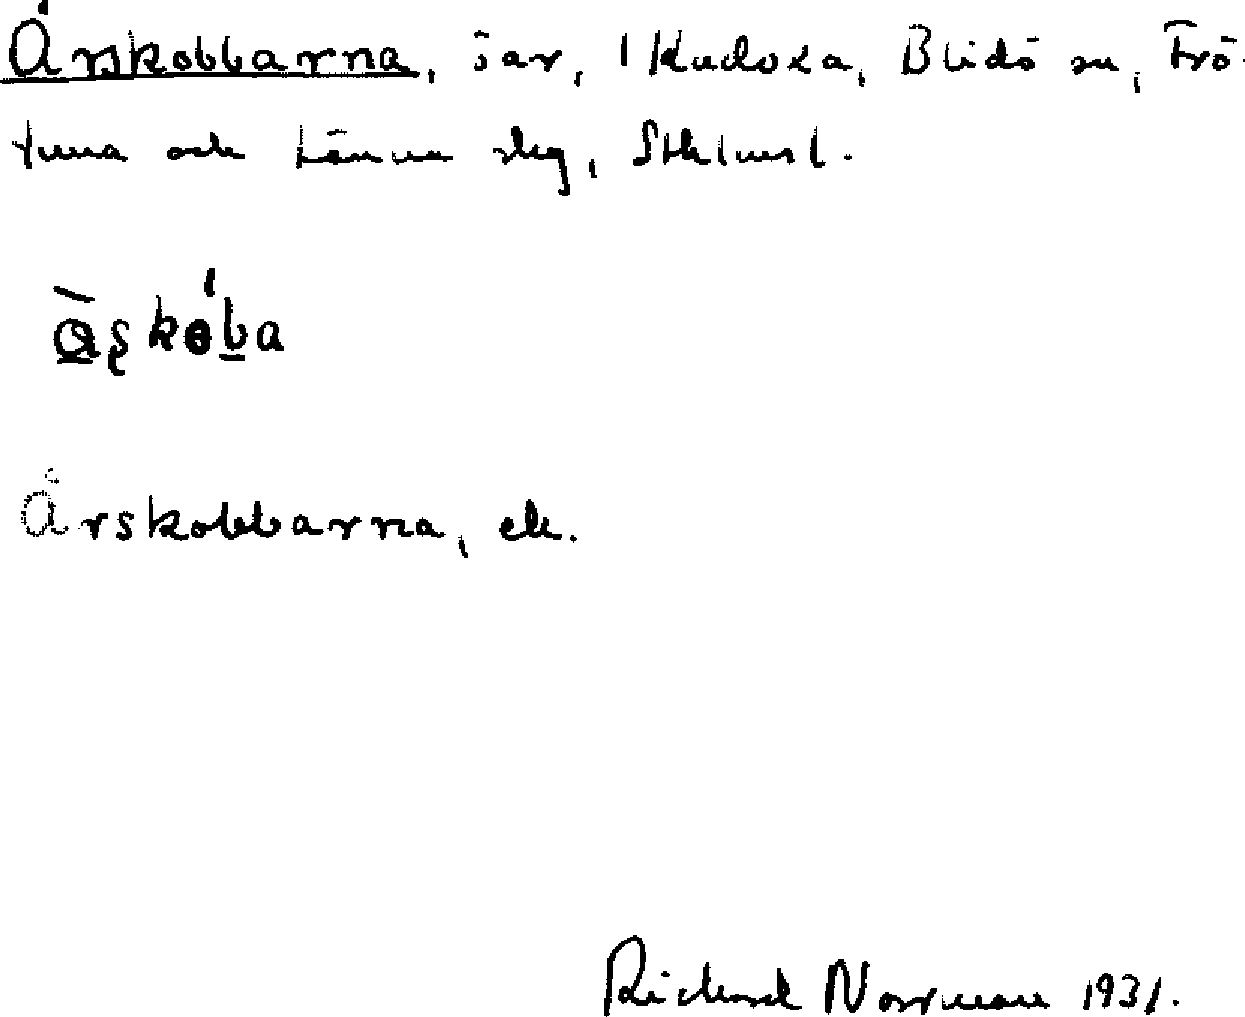 Årskobbarna, öar, 1 Kudoxa, Blidö sn, Frö-
tuna och Länna skg, Sthlms l.
Årskobbarna, ek.
Richard Norrman 1931.